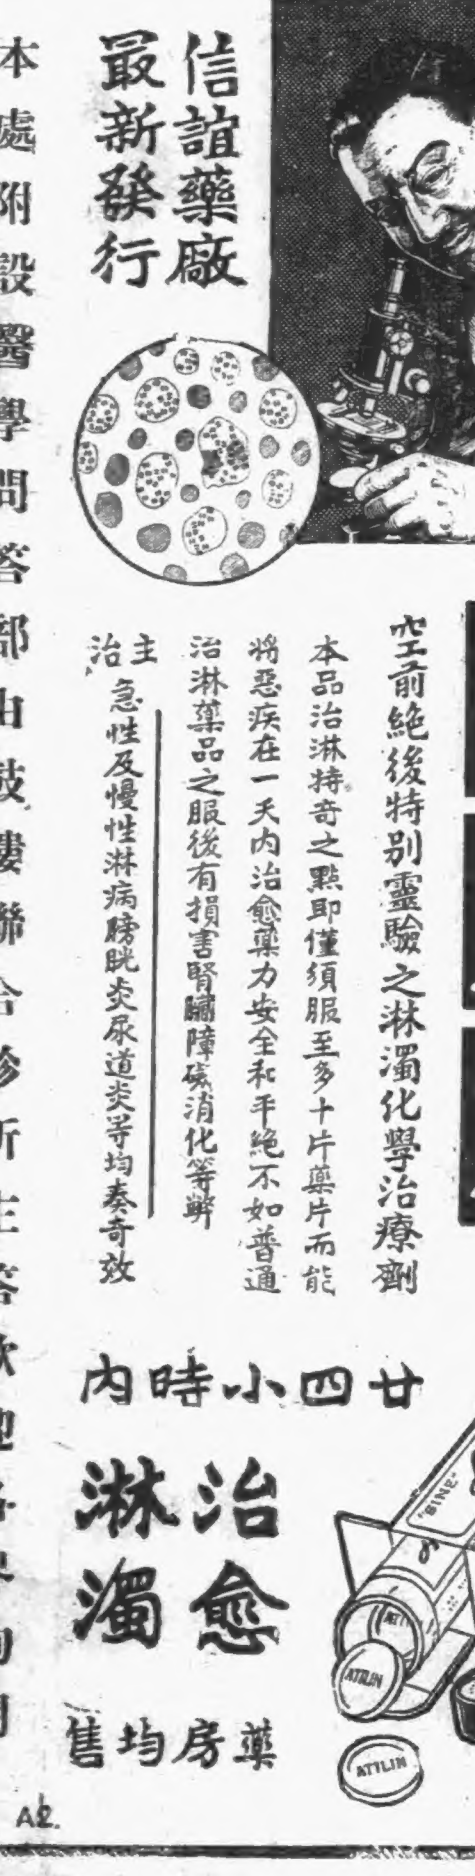 信誼藥廠
最新發行
空前絕後特別靈驗之淋濁化學治療劑
本品治淋特奇之點即僅須服至多十片藥片而能
將惡疾在一天內治愈藥力安全和平絕不如普通
治淋藥品之服後有損害腎臟障礙消化等弊
主治
急性及慢性淋病膀胱炎尿道炎等均奏奇效
廿四小時內
治愈
淋濁
藥房均售
"SINE"
ATTLIN
ATTLIN
A2.
本處附設醫學問答部由鼓樓聯合診所主答歡迎各界